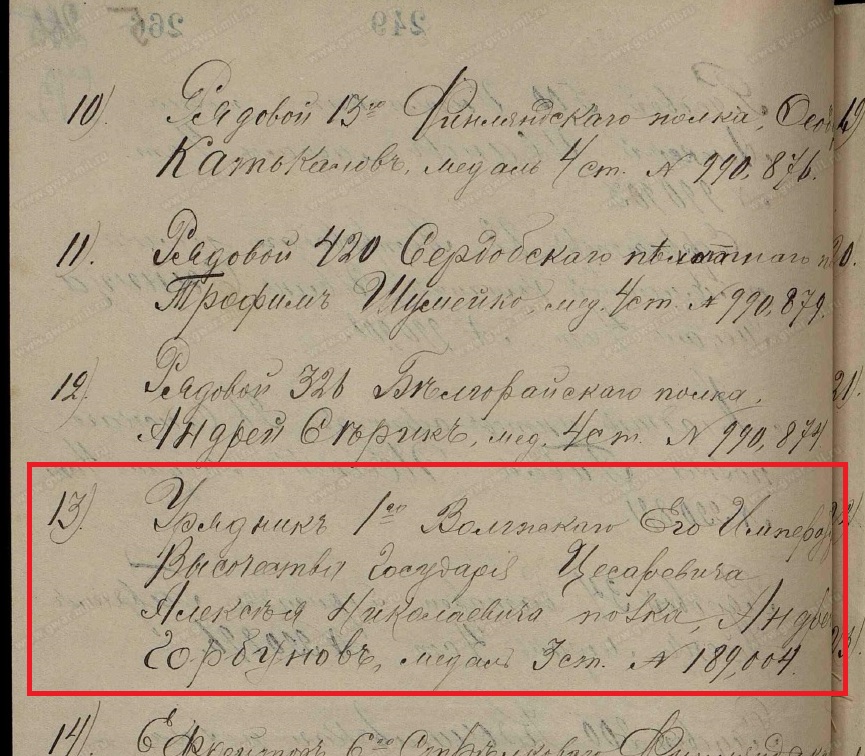 265
249
10) Рядовой 13го Финляндскаго полка,
Катькаловъ, медаль 4 ст. № 990,876.
11). Рядовой 420 Сердобскаго пѣхотнаго п
Трофимъ Шумейко, мед. 4 ст. № 990,879.
12) Рядовой 326 Бѣлгорайскаго полка,
Андрей Сѣрикъ, мед. 4 ст. № 990,874
13). Урядникъ 1го Волгскаго Его Императ
Высочества Государя Цесаревича
Алексѣя Николаевича полка, Андре
Горбуновъ, медаль 3 ст. № 189,004.
14) Ефрейторъ 6го Стрѣлковаго